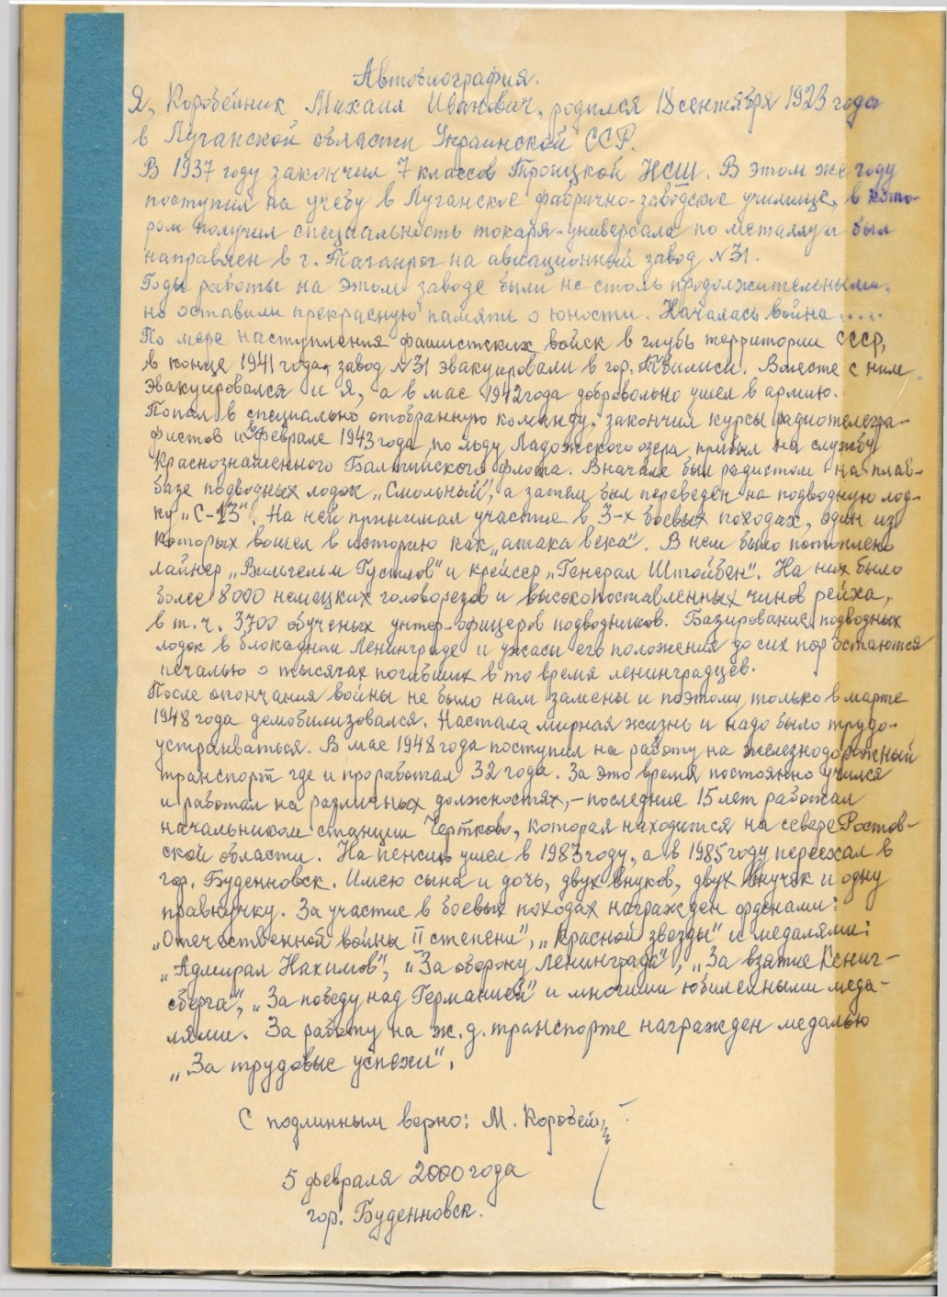 Автобиография.
Я, Коробейник Михаил Иванович, родился 18 сентября 1923 года
в Луганской области Украинской ССР.
В 1937 году закончил 7 классов Троицкой НСШ. В этом же году
поступил на учебу в Луганское фабрично-заводское училище, в кото-
ром получил специальность токаря-универсала по металлу и был
направлен в г. Таганрог на авиационный завод №31.
Годы работы на этом заводе были не столь продолжительными,
но оставили прекрасную память о юности. Началась война....
По мере наступления фашистских войск в глубь территории СССР,
в конце 1941 года, завод №31 эвакуировали в гор. Тбилиси. Вместе с ним
эвакуировался и я, а в мае 1942 года добровольно ушел в армию.
Попал в специально отобранную команду, закончил курсы радиотелегра-
фистов и в феврале 1943 года, по льду Ладожского озера, прибыл на службу
Краснознаменного Балтийского флота. Вначале был радистом на плав-
базе подводных лодок „Смольный", а затем был переведен на подводную лод-
ку „С-13". На ней принимал участие в 3-х боевых походах, один из
которых вошел в историю как „атака века". В нем было потоплено
лайнер „Вильгельм Густлов" и крейсер „Генерал Штойбен". На них было
более 8000 немецких головорезов и высокопоставленных чинов рейха,
в т.ч. 3700 обученых унтер-офицеров подводников. Базирование подводных
лодок в блокадном Ленинграде и ужасы его положения до сих пор остаются
печалью о тысячах погибших в то время ленинградцев.
После окончания войны не было нам замены и поэтому только в марте
1948 года демобилизовался. Настала мирная жизнь и надо было трудо-
устраиваться. В мае 1948 года поступил на работу на железнодорожный
транспорт где и проработал 32 года. За это время постоянно учился
и работал на различных должностях, - последние 15 лет работал
начальником станции Чертково, которая находится на севере Ростов-
ской области. На пенсию ушел в 1983 году, а в 1985 году переехал в
гор. Буденновск. Имею сына и дочь, двух внуков, двух внучек и одну
правнучку. За участие в боевых походах награжден орденами:
„Отечественной войны II степени", „Красной звезды" и медалями:
„Адмирал Нахимов", „За оборону Ленинграда", „За взятие Кениг-
сберга", „За победу над Германией" и многими юбилейными меда-
лями. За работу на ж.д. транспорте награжден медалью
„За трудовые успехи".
С подлинным верно: М. Коробей
5 февраля 2000 года
гор. Буденновск.